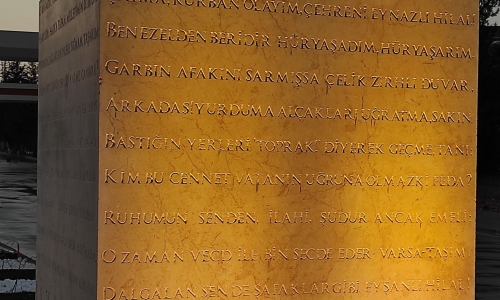 ÇATMA, KURBAN OLAYIM, ÇEHRENİ EY NAZLI HİLAL!
BEN EZELDEN BERİDİR HÜR YAŞADIM, HÜR YAŞARIM.
GARBIN AFAKINI SARMIŞSA ÇELİK ZIRHLI DUVAR,
ARKADAŞ! YURDUMA ALÇAKLARI UĞRATMA, SAKIN.
BASTIĞIN YERLERİ "TOPRAK!" DİYEREK GEÇME, TANI:
KİM BU CENNET VATANIN UĞRUNA OLMAZ Kİ FEDA?
RUHUMUN SENDEN, İLAHİ, ŞUDUR ANCAK EMELİ:
O ZAMAN VECD İLE BİN SECDE EDER -VARSA- TAŞIM,
DALGALAN SEN DE ŞAFAKLAR GİBİ EY ŞANLI HİLAL!